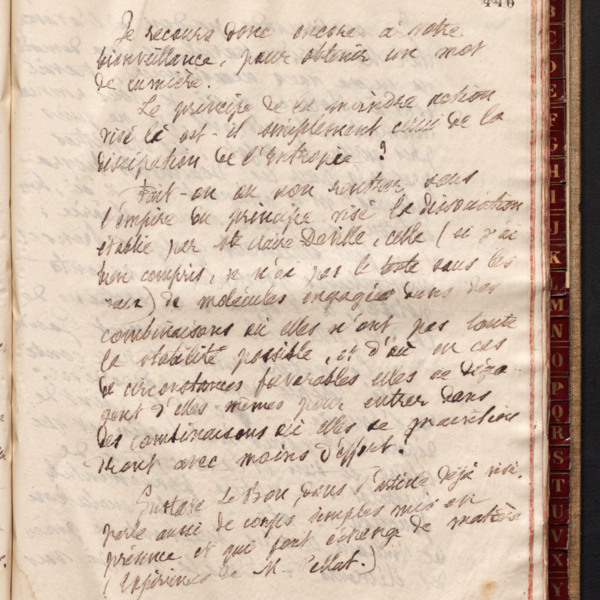 446
Je recours donc encore à votre
bienveillance, pour obtenir un mot
de lumière.
Le principe de la moindre action
visé là est-il simplement celui de la
dissipation de l'Entropie ?
Fait-on ou non rentrer sous
l'empire du principe visé la dissociation
établie par Ste Claire Deville, celle (si j'ai
bien compris, je n'ai pas le texte sous les
yeux) de molécules engagées dans des
combinaisons où elles n'ont pas toute
la stabilité possible, et d'où en cas
de circonstances favorables elles se déga-
gent d'elles-mêmes pour entrer dans
des combinaisons où elles se
avec moins d'effort ?
Gustave Le Bon, dans l'article déjà visé,
parle aussi de corps simples mis en
présence et qui font échange de matière
(Expériences de M. Pellat.)
B
C
D
E
F
G
H
I
J
K
L
M
N
O
P
Q
R
S
T
U
V
X
Y